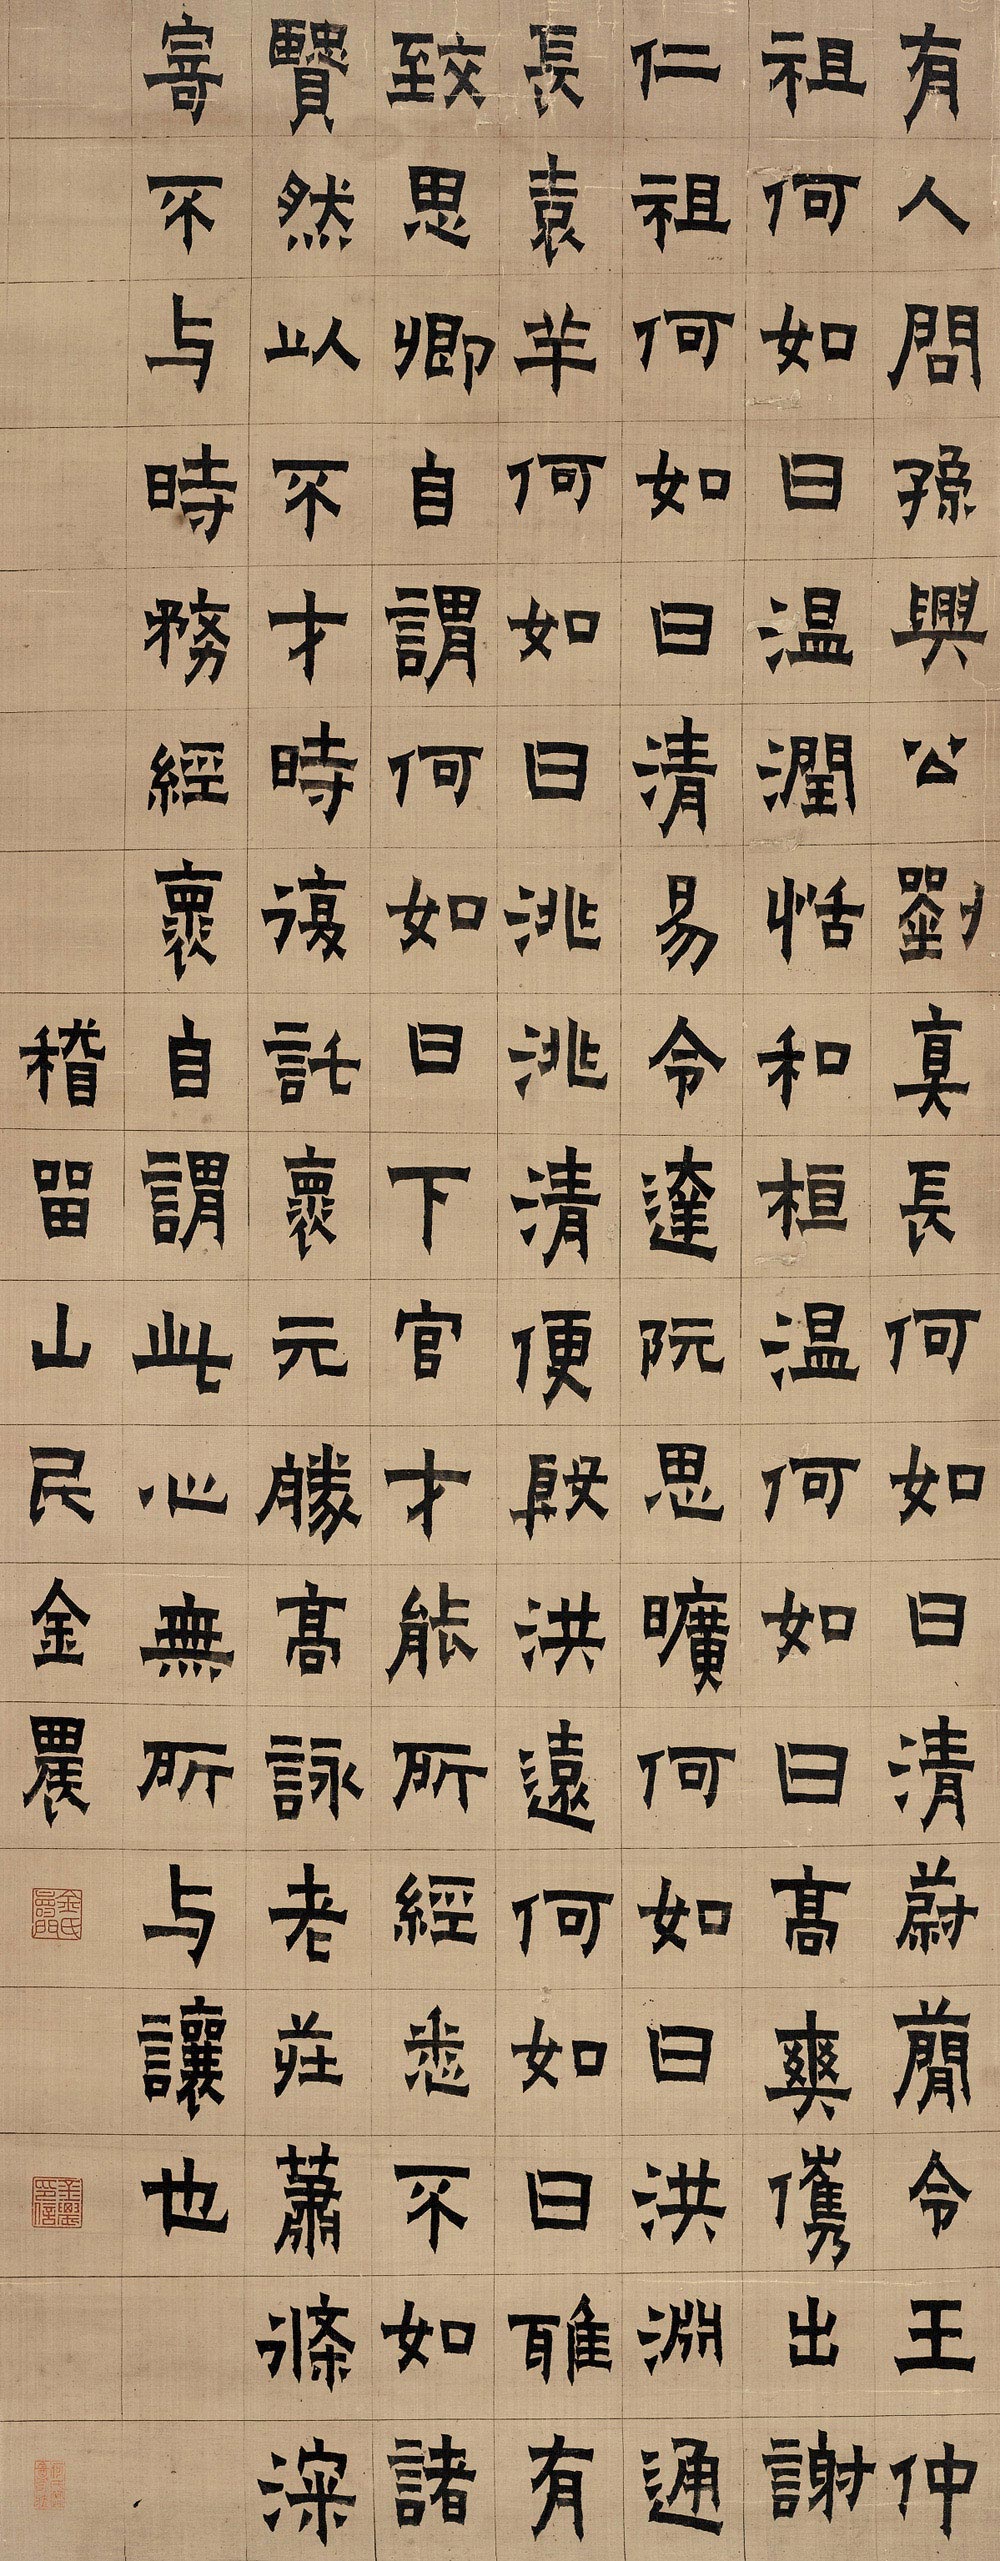 有人問孫興公劉真長何如曰清蔚簡令王仲
祖何如曰温潤恬和桓温何如曰髙爽儁出謝
仁祖何如曰清易令達阮思曠何如曰洪淵通
長袁羊何如曰洮洮清便殷洪遠何如曰雅有
致思卿自謂何如曰下官才能所經悉不如諸
賢然以不才時復託褱元勝髙詠老莊蕭條深
寄不与時務經褱自謂此心無所与讓也
稽留山民金農
金氏壽門
金農印信